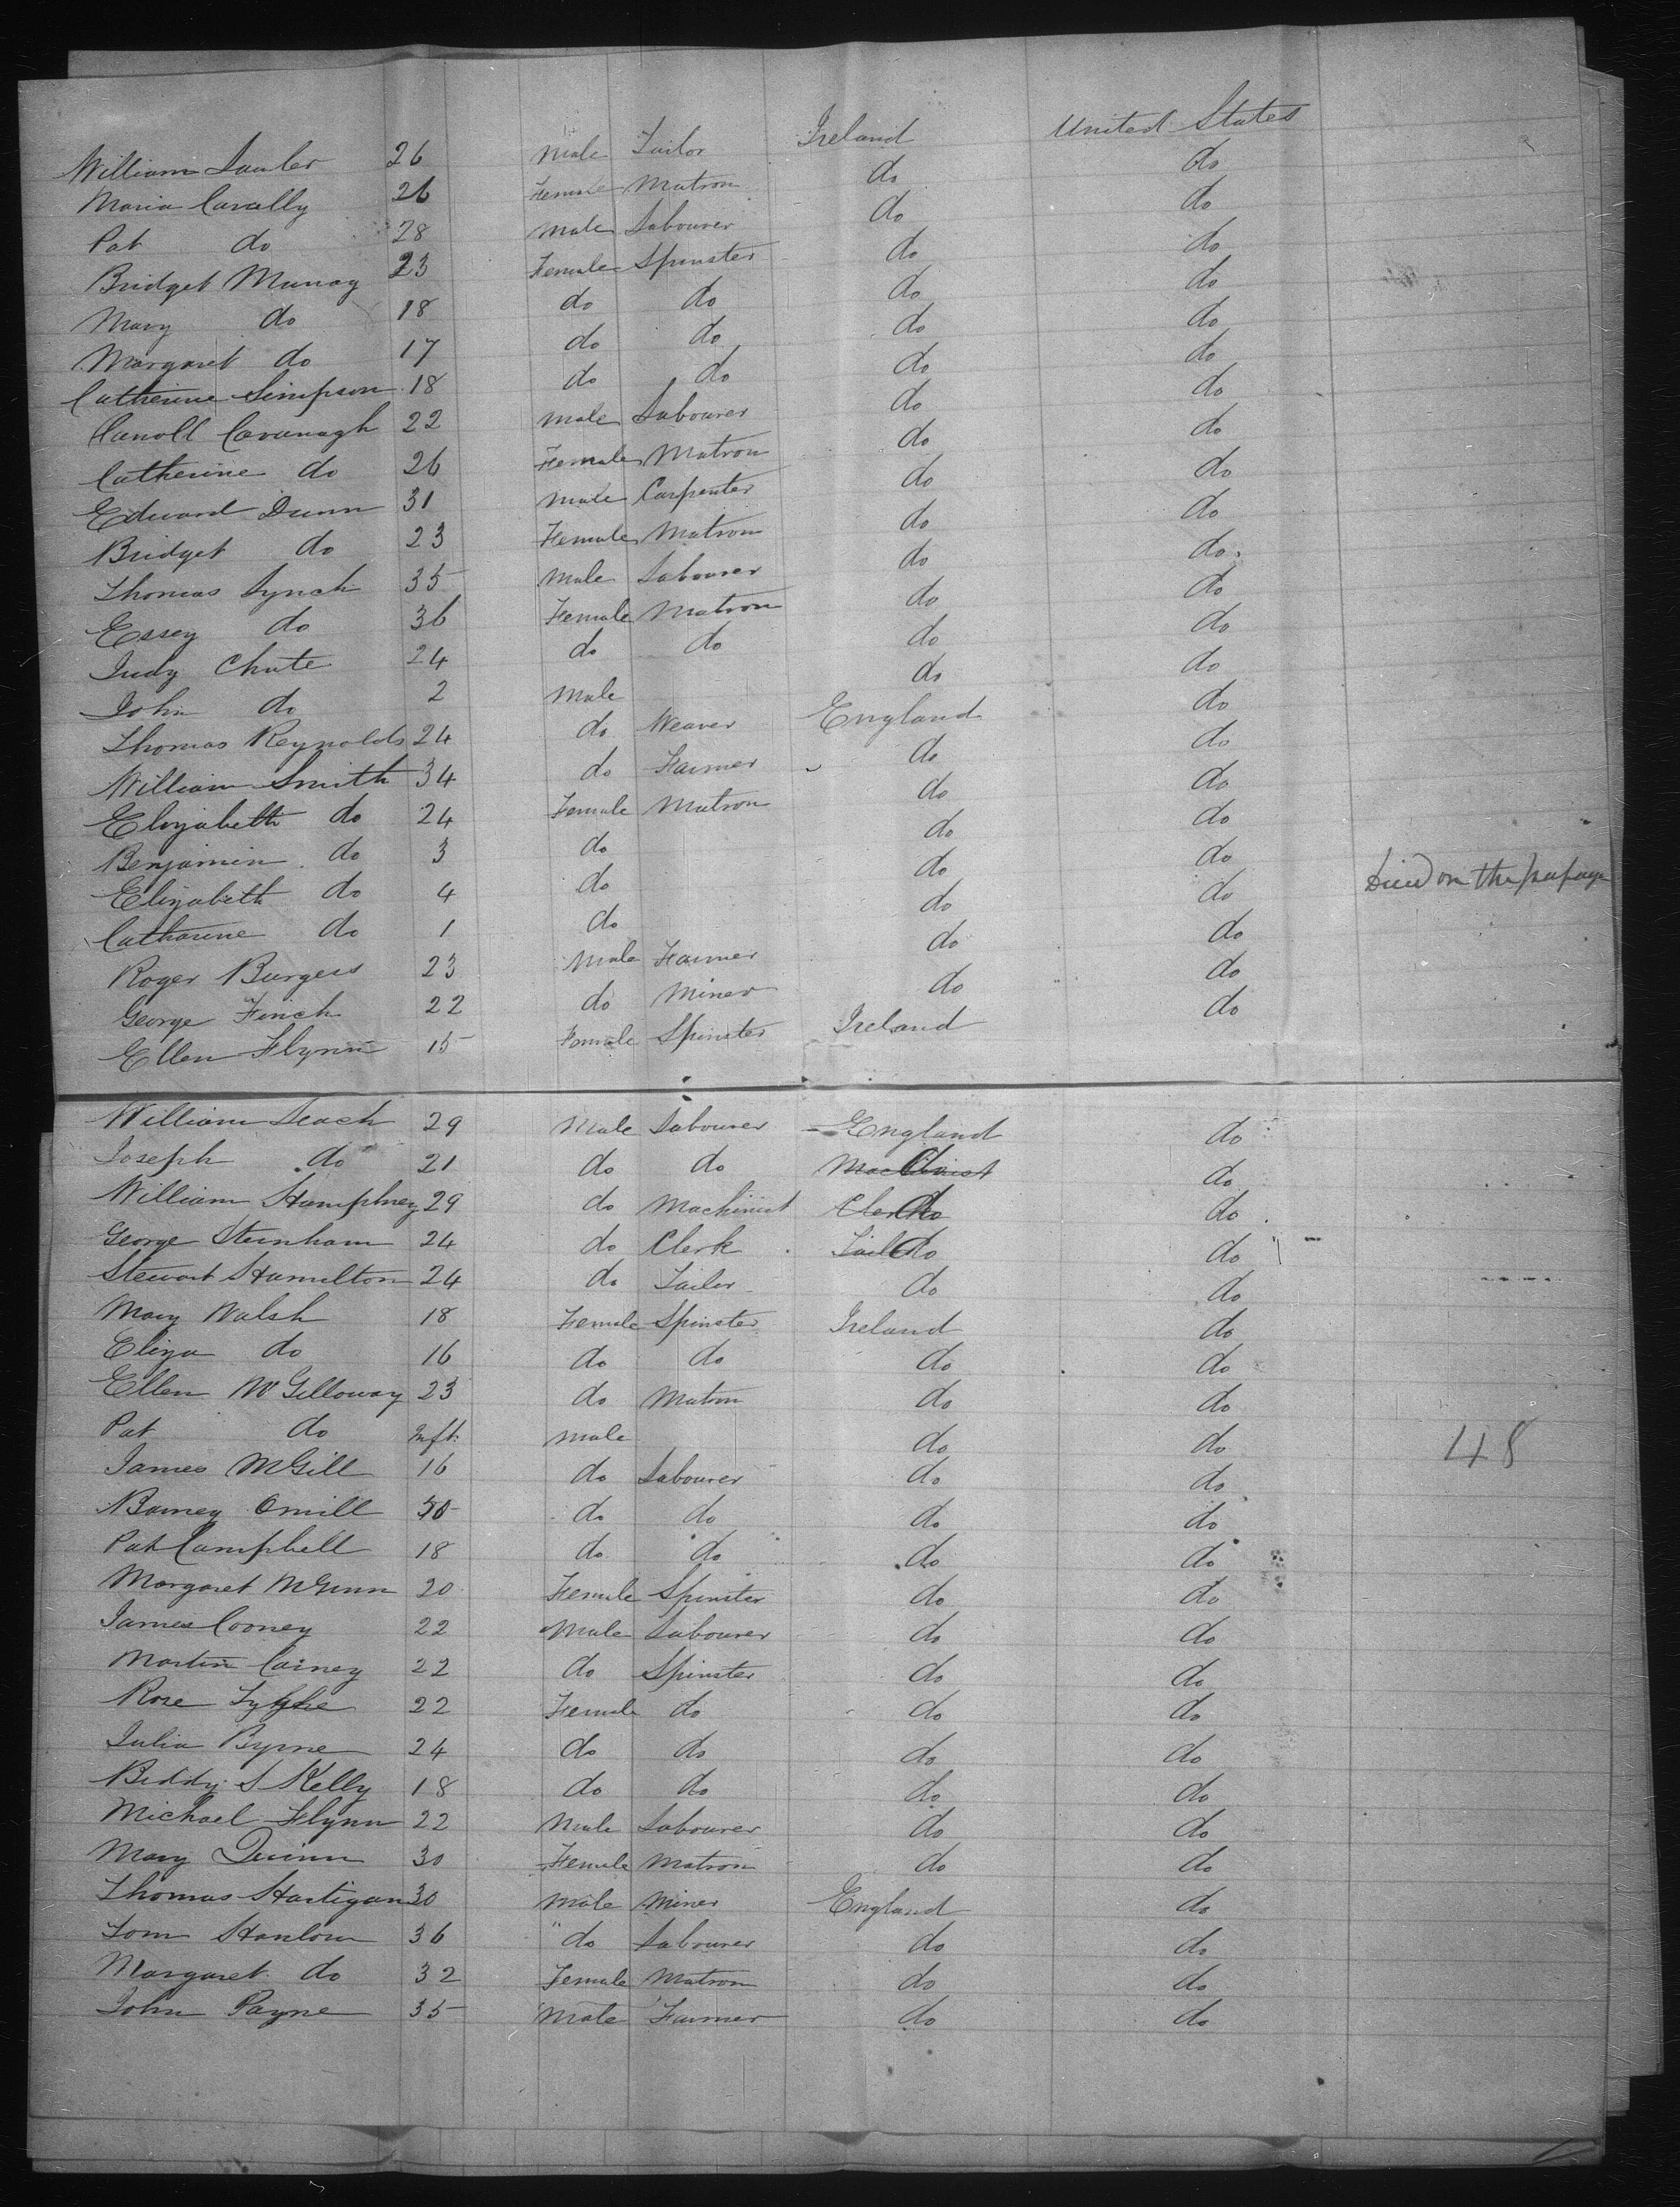 William Lawler 26 Male Tailor Ireland United States
Maria Cavally 26 Female Matron do do
Pat do 28 Male Labourer do do
Bridget Murray 23 Female Spinster do do
Mary do 18 do do do do
Margaret do 17 do do do do
Catherine Simpson 18 do do do do
Caroll Cavanagh 22 Male Labourer do do
Catherine do 26 Female Matron do do
Edward Dunn 31 Male Carpenter do do
Bridget do 23 Female Matron do do
Thomas Lynch 35 Male Labourer do do
Essey do 36 Female Matron do do
Judy Chute 24 do do do do
John do 2 Male do do
Thomas Reynolds 24 do Weaver England do
William Smith 34 do Farmer do do
Elizabeth do 24 Female Matron do do
Benjamin do 3 do do do
Elizabeth do 4 do do do Died on the passage
Catharine do 1 do do do
Roger Burgess 23 Male Farmer do do
George Finch 22 do Miner do do
Ellen Flynn 15 Female Spinster Ireland do
William Leach 29 Male Labourer England do
Joseph do 21 do do Machinist do do
William Humphrey 29 do Machinist Clerk do do
George Steinham 24 do Clerk Tailor do do
Stewart Hamilton 24 do Tailor do do
Mary Walsh 18 Female Spinster Ireland do
Eliza do 16 do do do do
Ellen McGilloway 23 do Matron do do
Pat do Inft. Male do do 48
James McGill 16 do Labourer do do
Barney Oneill 50 do do do do
Pat Campbell 18 do do do do
Margaret McGinn 20 Female Spinster do do
James Cooney 22 Male Labourer do do
Martin Cainey 22 do Spinster do do
Rose 22 Female do do do
Julia Byrne 24 do do do do
Biddy S Kelly 18 do do do do
Michael Flynn 22 Male Labourer do do
Mary Quinn 30 Female Matron do do
Thomas Hartigan 30 Male Miner England do
Tom Hanlon 36 do Labourer do do
Margaret do 32 Female Matron do do
John Payne 35 Male Farmer do do